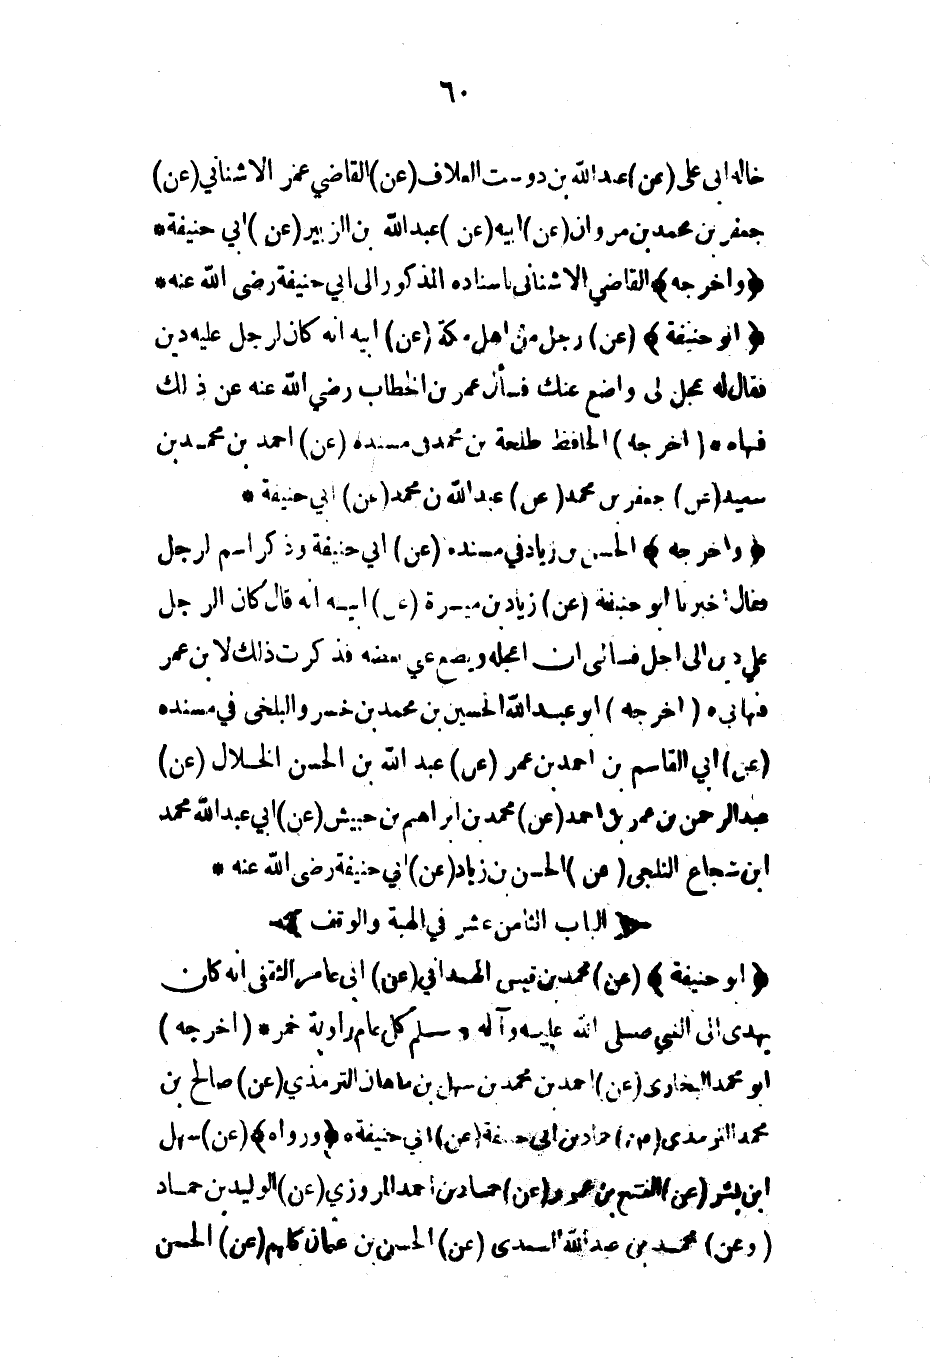 ٦٠
خاله ابى على (عن) عبدالله بن دوست العلاف (عن) القاضي عمر الاشناني (عن)
جعفر بن محمد بن مروان (عن) ابيه (عن) عبدالله بن الزبير (عن) ابي حنيفة *
﴿واخرجه﴾ القاضي الاشنانى باسناده المذكور الى ابي حنيفة رضى الله عنه *
﴿ابو حنيفة﴾ (عن) رجل من اهل مكة (عن) ابيه انه كان لرجل عليه دين
فقال له عجل لى واضع عنك فسأل عمر بن الخطاب رضي الله عنه عن ذلك
فنهاه * (اخرجه) الحافظ طلحة بن محمد فى مسنده (عن) احمد بن محمد بن
سعيد (عن) جعفر بن محمد (عن) عبدالله بن محمد (عن) ابي حنيفة *
﴿واخرجه﴾ الحسن بن زياد في مسنده (عن) ابي حنيفة وذكر اسم الرجل
فقال اخبرنا ابو حنيفة (عن) زياد بن ميسرة (عن) ابيه انه قال كان الرجل
علي دين الى اجل فسألنى ان اعجله ويضع عني بعضه فذكرت ذلك لابن عمر
فنهاني * (اخرجه) ابو عبدالله الحسين بن محمد بن خسرو البلخى في مسنده
(عن) ابي القاسم بن احمد بن عمر (عن) عبد الله بن الحسن الخلال (عن)
عبدالرحمن بن عمر بن احمد (عن) محمد بن ابراهيم بن حبيش (عن) ابي عبدالله محمد
ابن شجاع الثلجى (عن) الحسن بن زياد (عن) ابي حنيفة رضى الله عنه *
﴿الباب الثامن عشر في الهبة والوقف﴾
﴿ابو حنيفة﴾ (عن) محمد بن قيس الهمداني (عن) ابى عامر الثقفى انه كان
يهدى الى النبي صلى الله عليه وآله وسلم كل عام راوية خمر * (اخرجه)
ابو محمد البخارى (عن) احمد بن محمد بن سهل بن ماهان الترمذي (عن) صالح بن
محمد الترمذى (عن) حماد بن ابى حنيفة (عن) ابي حنيفة * ﴿ورواه﴾ (عن) سهل
ابن بشر (عن) الفتح بن عمرو (عن) حماد بن احمد المروزي (عن) الوليد بن حماد
(وعن) محمد بن عبدالله السعدى (عن) الحسن بن عثمان كلهم (عن) الحسن